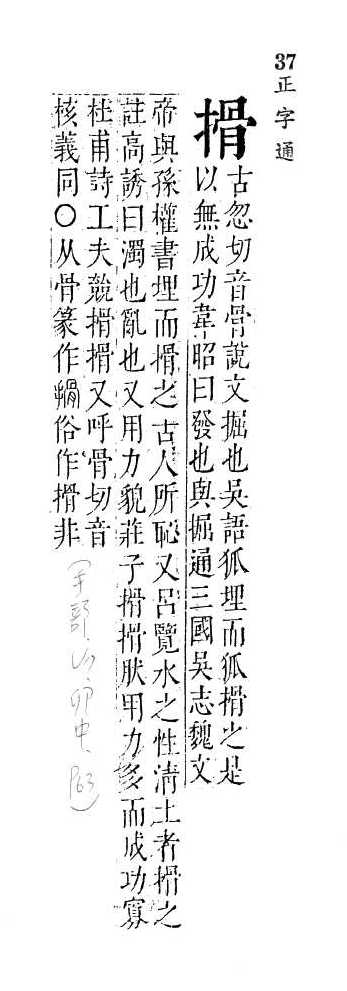 37
正字通
搰
古忽切音骨說文掘也吳語狐埋而狐搰之是
以無成功韋昭曰發也與掘通三國吳志魏文
帝與孫權書埋而搰之古人所恥又呂覽水之性淸土者搰之
註高誘曰濁也亂也又用力貌莊子搰搰肰用力多而成功寡
杜甫詩工夫競搰搰又呼骨切音
核義同○从骨篆作搰俗作搰非